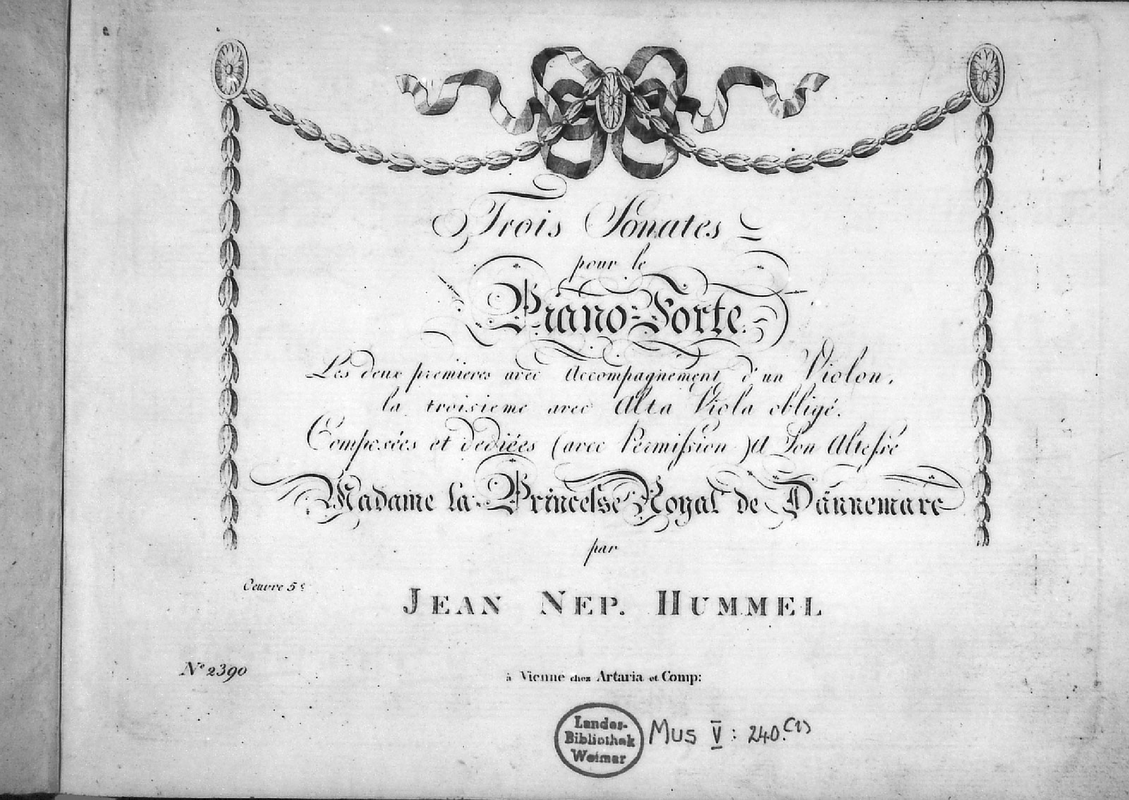 Trois Sonates
pour le
Piano-Forte
Les deux premieres avec Accompagnement d'un Violon,
la troisieme avec Alta Viola obligé.
Composées et Dediées (avec Permission) A Son Altesse
Madame la Princesse Royal de Dannemarc
par
Oeuvre 5e
JEAN NEP. HUMMEL
No 2390
à Vienne chez Artaria et Comp:
Landes-
Bibliothek
Weimar
Mus V : 240.(1)